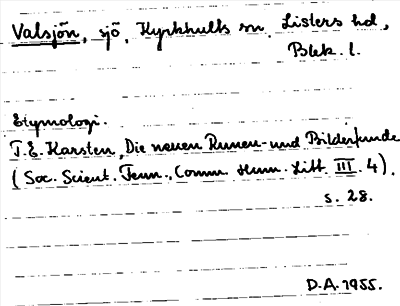 Valsjön, sjö, Kyrkhults sn, Listers hd,
Blek. l.
Etymologi.
T.E. Karsten, Die neuen Runen- und Bilderfunde
(Soc. Scient. Fenn., Comm. Hum. Litt. III. 4).
s. 28.
D.A. 1955.